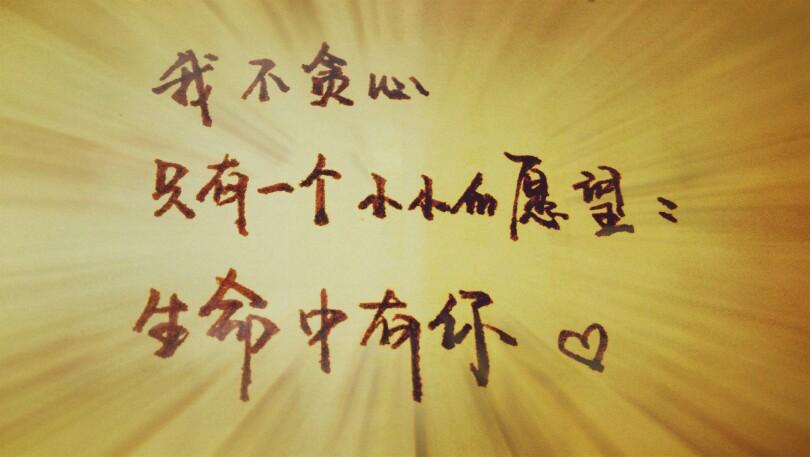 我不贪心
只有一个小小的愿望:
生命中有你♡